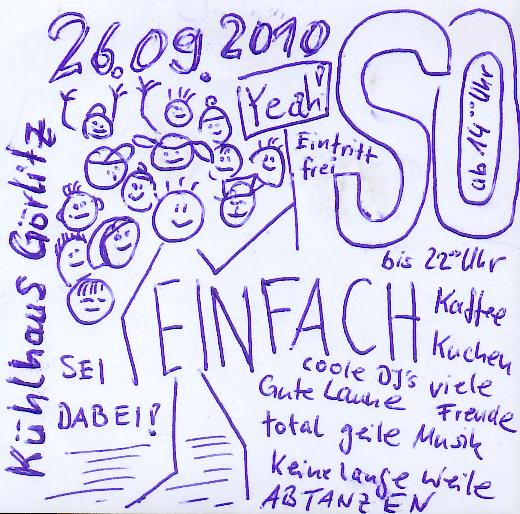 26.09.2010
Yeah!
SO
ab 14°° Uhr
Eintritt
frei
bis 22°° Uhr
Kühlhaus Görlitz
EINFACH
Kaffee
Kuchen
SEI
DABEI!
coole DJ's
viele
Freude
Gute Laune
total geile Musik
Keine lange weile
ABTANZEN